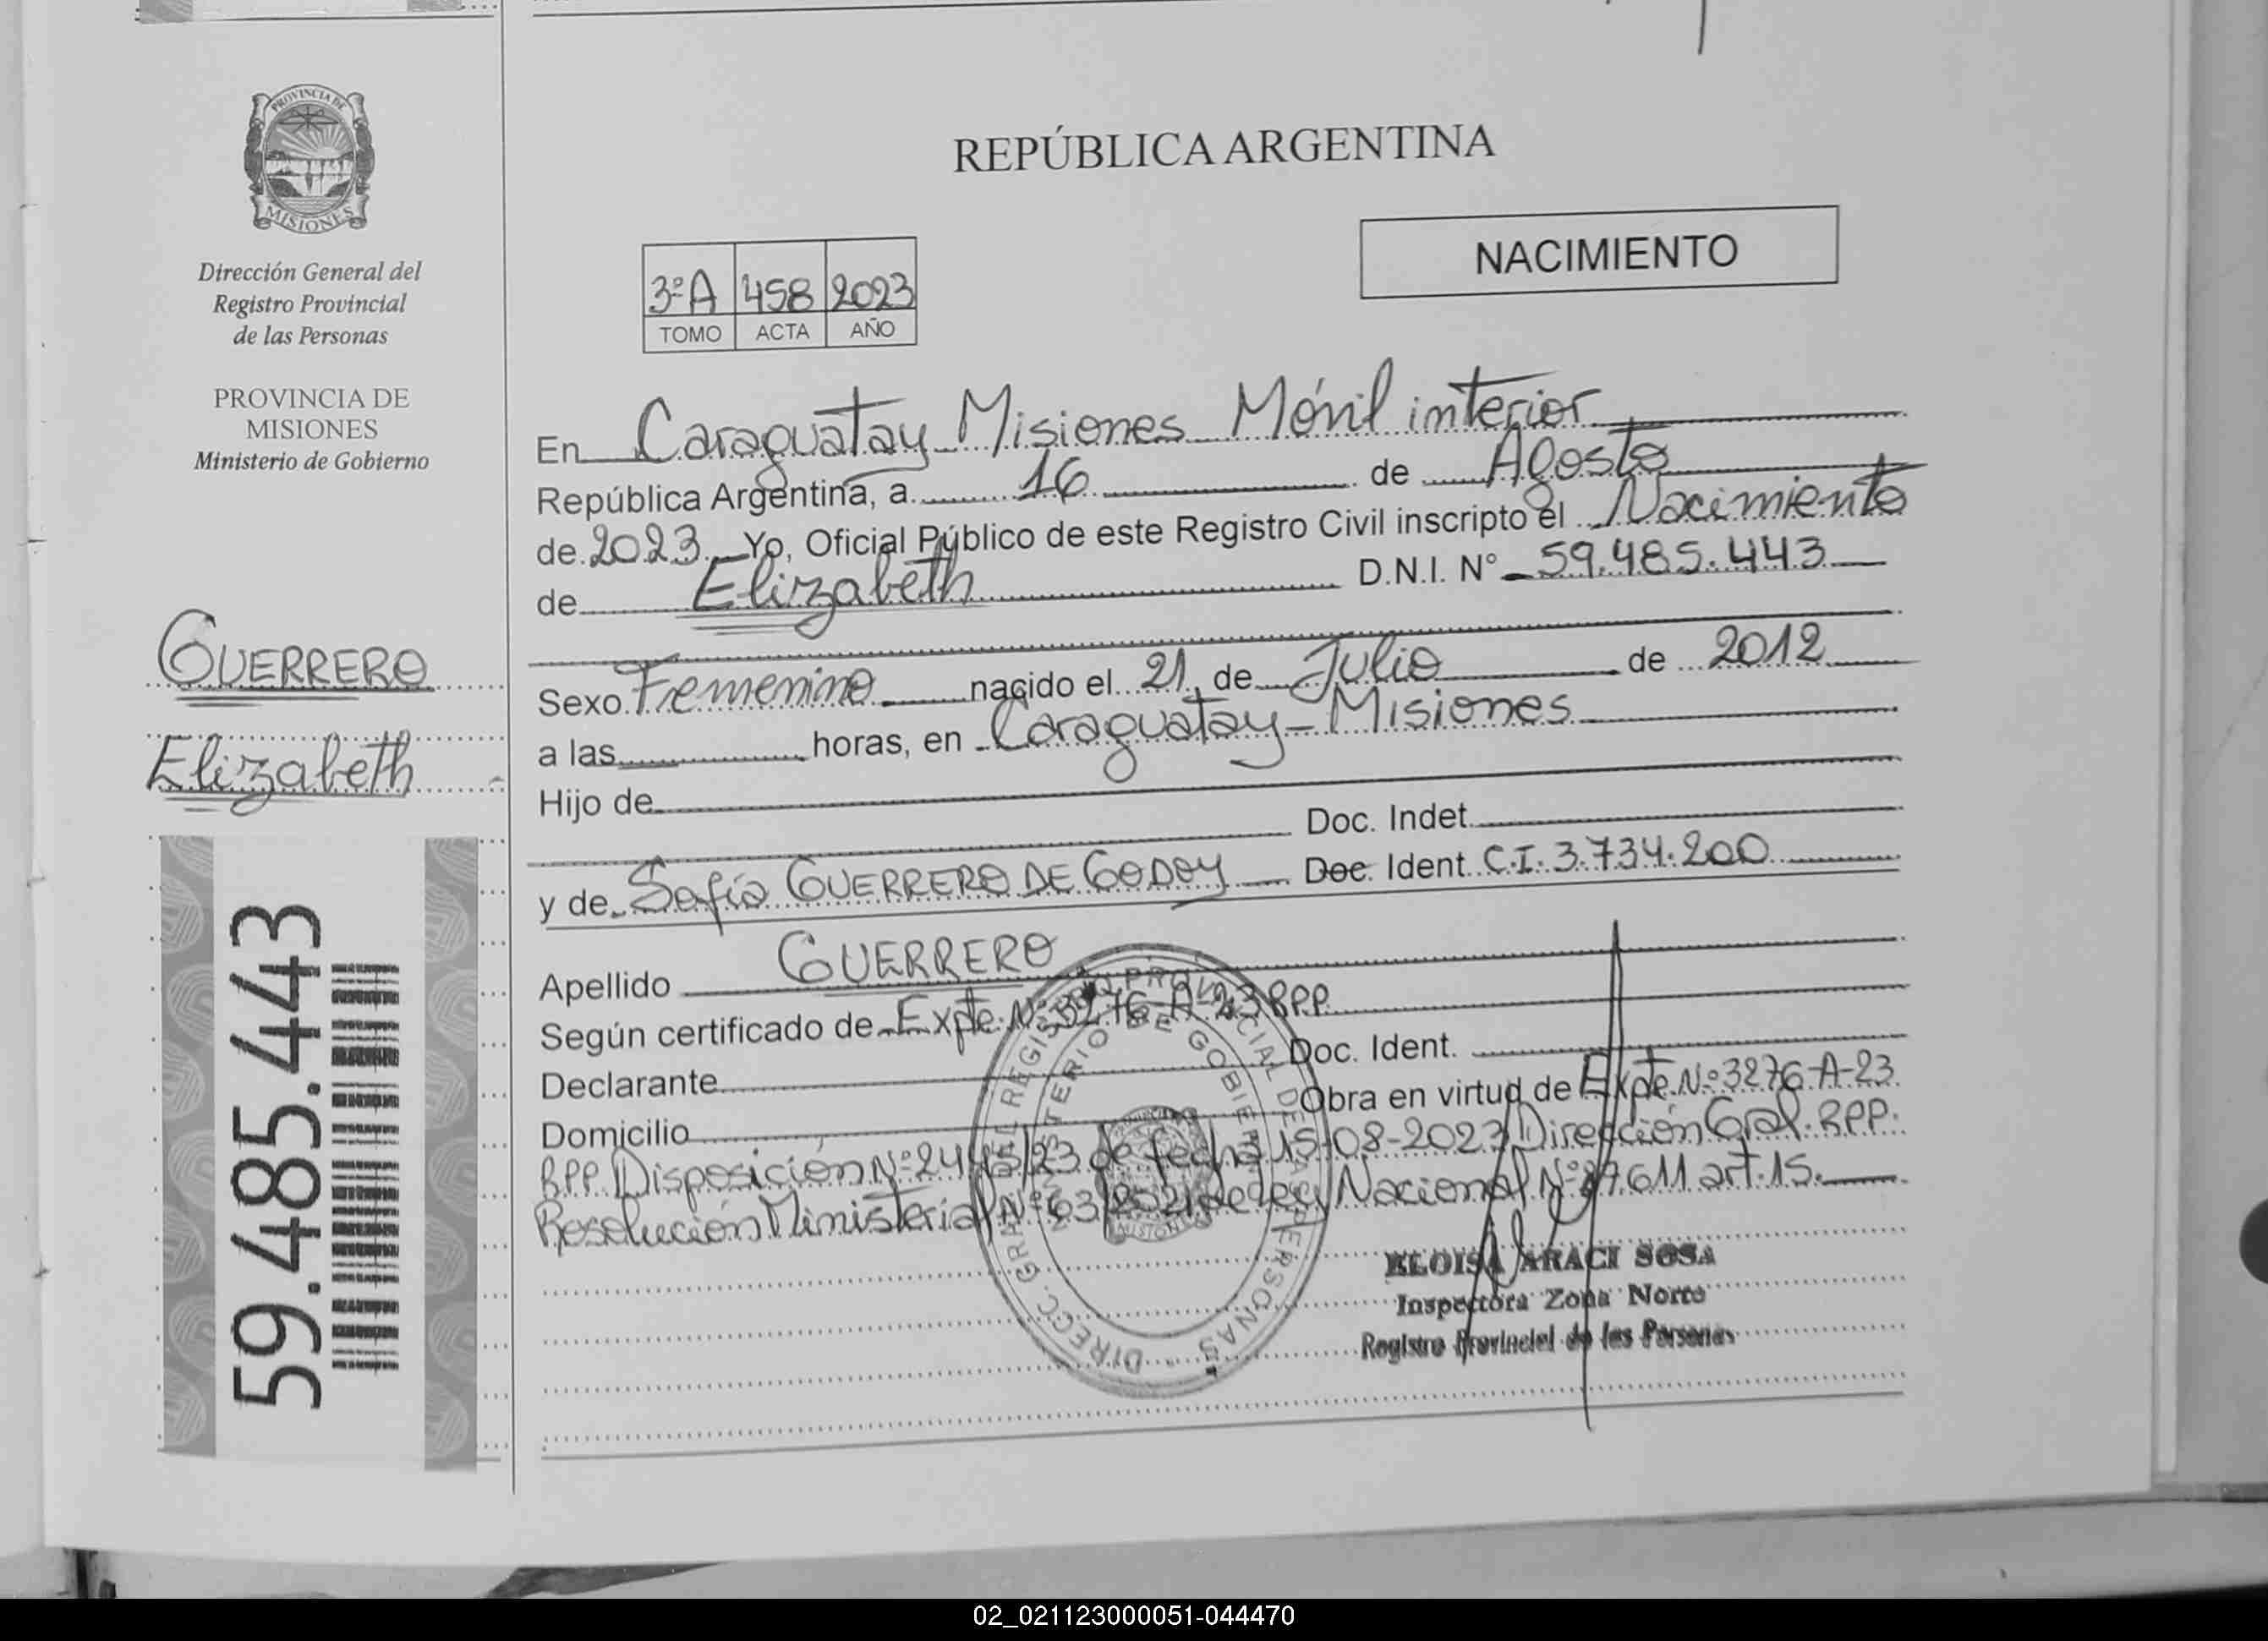 PROVINCIA DE
MISIONES
Dirección General del
Registro Provincial
de las Personas
PROVINCIA DE
MISIONES
Ministerio de Gobierno
GUERRERO
Elizabeth
59.485.443
REPÚBLICA ARGENTINA
NACIMIENTO
3ºA 458 2023
TOMO ACTA AÑO
En Caraguatay Misiones Móvil interior
República Argentina, a 16 de Agosto
de 2023 Yo, Oficial Público de este Registro Civil inscripto el Nacimiento
de Elizabeth D.N.I. N° 59.485.443
Sexo Femenino nacido el 21 de Julio de 2012
a las horas, en Caraguatay - Misiones
Hijo de
Doc. Indet.
y de Sofía GUERRERO DE GODOY Doc. Ident. C.I. 3.734.200
Apellido GUERRERO
Según certificado de Expte. Nº 3276-A-23 RPP.
Declarante Doc. Ident.
Domicilio Obra en virtud de Expte. Nº 3276-A-23
RPP. Disposición Nº 2445/23 de fecha 15-08-2023 Dirección Gral. RPP.
Resolución Ministerial Nº 63/2021 de Ley Nacional Nº 27611 art. 15.
DIRECC. GRAL. DEL REGISTRO PROVINCIAL DE LAS PERSONAS
MINISTERIO DE GOBIERNO
MISIONES
ELOISA ARACI SOSA
Inspectora Zona Norte
Registro Provincial de las Personas
02_021123000051-044470